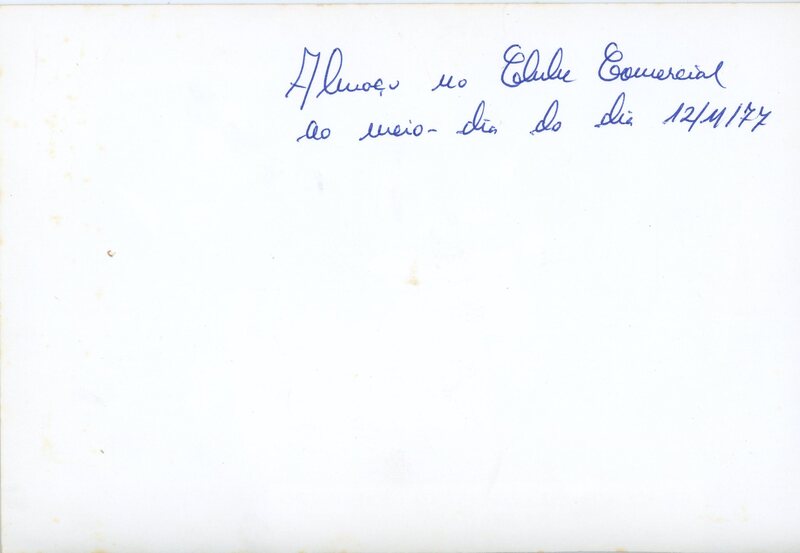 Almoço no Clube Comercial
ao meio-dia do dia 12/11/77